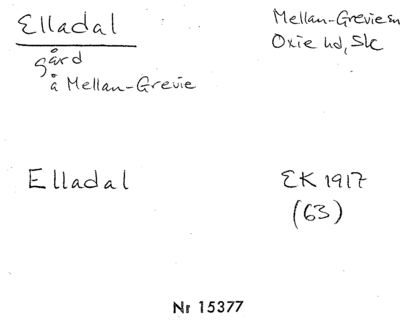 Elladal
Mellan-Grevie sn
Oxie hd, Sk
gård
å Mellan-Grevie
Elladal
EK 1917
(63)
Nr 15377